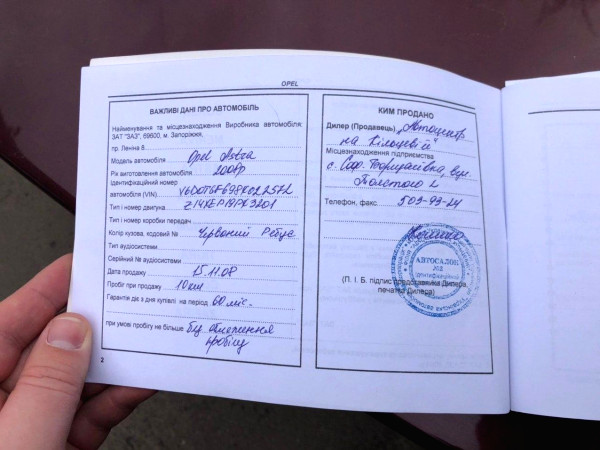 OPEL
ВАЖЛИВІ ДАНІ ПРО АВТОМОБІЛЬ
Найменування та місцезнаходження Виробника автомобіля:
ЗАТ "ЗАЗ", 69600, м. Запоріжжя,
пр. Леніна 8
Модель автомобіля Opel Astra
Рік виготовлення автомобіля 2008р
Ідентифікаційний номер
автомобіля (VIN)
Тип і номер двигуна
Тип і номер коробки передач
Колір кузова, кодовий № Червоний Рубус
Тип аудіосистеми
Серійний № аудіосистеми
Дата продажу 15.11.08
Пробіг при продажу 10км
Гарантія діє з дня купівлі на період 60 міс.
при умові пробігу не більше без обмеження
пробігу
2
КИМ ПРОДАНО
Дилер (Продавець) „Автоцентр
на Кільцевій"
Місцезнаходження підприємства
с. Соф. Борщагівка, вул.
Полетаєва 2
Телефон, факс 503-93-24
АВТОСАЛОН
№2
(П. І. Б. підпис представника Дилера,
печатка Дилера)